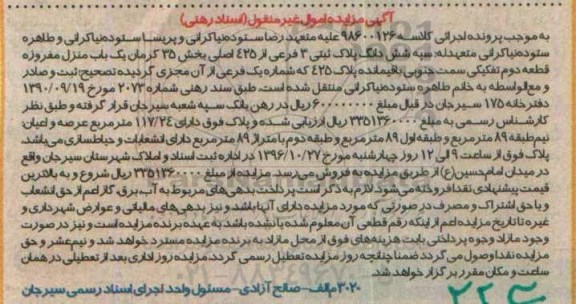 آگهی مزایده اموال غیرمنقول (اسناد رهنی)
به موجب پرونده اجرائی کلاسه ۹۸۶۰۰۱۲۶ علیه متعهد رضا ستوده‌نیاکرانی و پریسا ستوده‌نیاکرانی و طاهره
ستوده‌نیاکرانی متعهدله: سپه شش دانگ پلاک ثبتی ۳ فرعی از ۴۲۵ اصلی بخش ۳۵ کرمان یک باب منزل مفروزه
قطعه دوم تفکیکی سمت جنوبی باقیمانده پلاک ۴۲۵ که شماره یک فرعی از آن مجزی گردیده تصحیح ثبت و صادر
و مع‌الواسطه به خانم طاهره ستوده‌نیاکرانی منتقل شده است. طبق سند رهنی شماره ۲۰۷۳ مورخ ۱۳۹۰/۰۹/۱۹
دفترخانه ۱۷۵ سیرجان در قبال مبلغ ۶۰۰۰۰۰۰۰۰ ریال در رهن بانک سپه شعبه سیرجان قرار گرفته و طبق نظر
کارشناس رسمی به مبلغ ۳۳۵۱۳۶۰۰۰۰ ریال ارزیابی شده و پلاک فوق دارای ۱۱۷/۲۴ متر مربع عرصه و اعیان:
نیم‌طبقه ۸۹ متر مربع و طبقه اول ۸۹ متر مربع و طبقه دوم با متراژ ۸۹ متر مربع دارای انشعابات و حیاط‌سازی می‌باشد.
پلاک فوق از ساعت ۹ الی ۱۲ روز چهارشنبه مورخ ۱۳۹۶/۱۰/۲۷ در اداره ثبت اسناد و املاک شهرستان سیرجان واقع
در میدان امام حسین(ع) از طریق مزایده به فروش می‌رسد. مزایده از مبلغ ۳۳۵۱۳۶۰۰۰۰ ریال شروع و به بالاترین
قیمت پیشنهادی نقدا فروخته می‌شود. لازم به ذکر است پرداخت بدهی‌های مربوط به آب، برق، گاز اعم از حق انشعاب
و یا حق اشتراک و مصرف در صورتی که مورد مزایده دارای آنها باشد و نیز بدهی‌های مالیاتی و عوارض شهرداری و
غیره تا تاریخ مزایده اعم از اینکه رقم قطعی آن معلوم شده یا نشده باشد به عهده برنده مزایده است و نیز در صورت
وجود مازاد وجوه پرداختی بابت هزینه‌های فوق از محل مازاد به برنده مزایده مسترد خواهد شد و نیم‌عشر و حق
مزایده نقدا وصول می‌گردد ضمنا چنانچه روز مزایده تعطیل رسمی گردد، مزایده روز اداری بعد از تعطیلی در همان
ساعت و مکان مقرر برگزار خواهد شد.
۳۰۲۰ م‌الف - صالح آزادی - مسئول واحد اجرای اسناد رسمی سیرجان
۰۲۱-۸۸۳۴۹۶۷۰